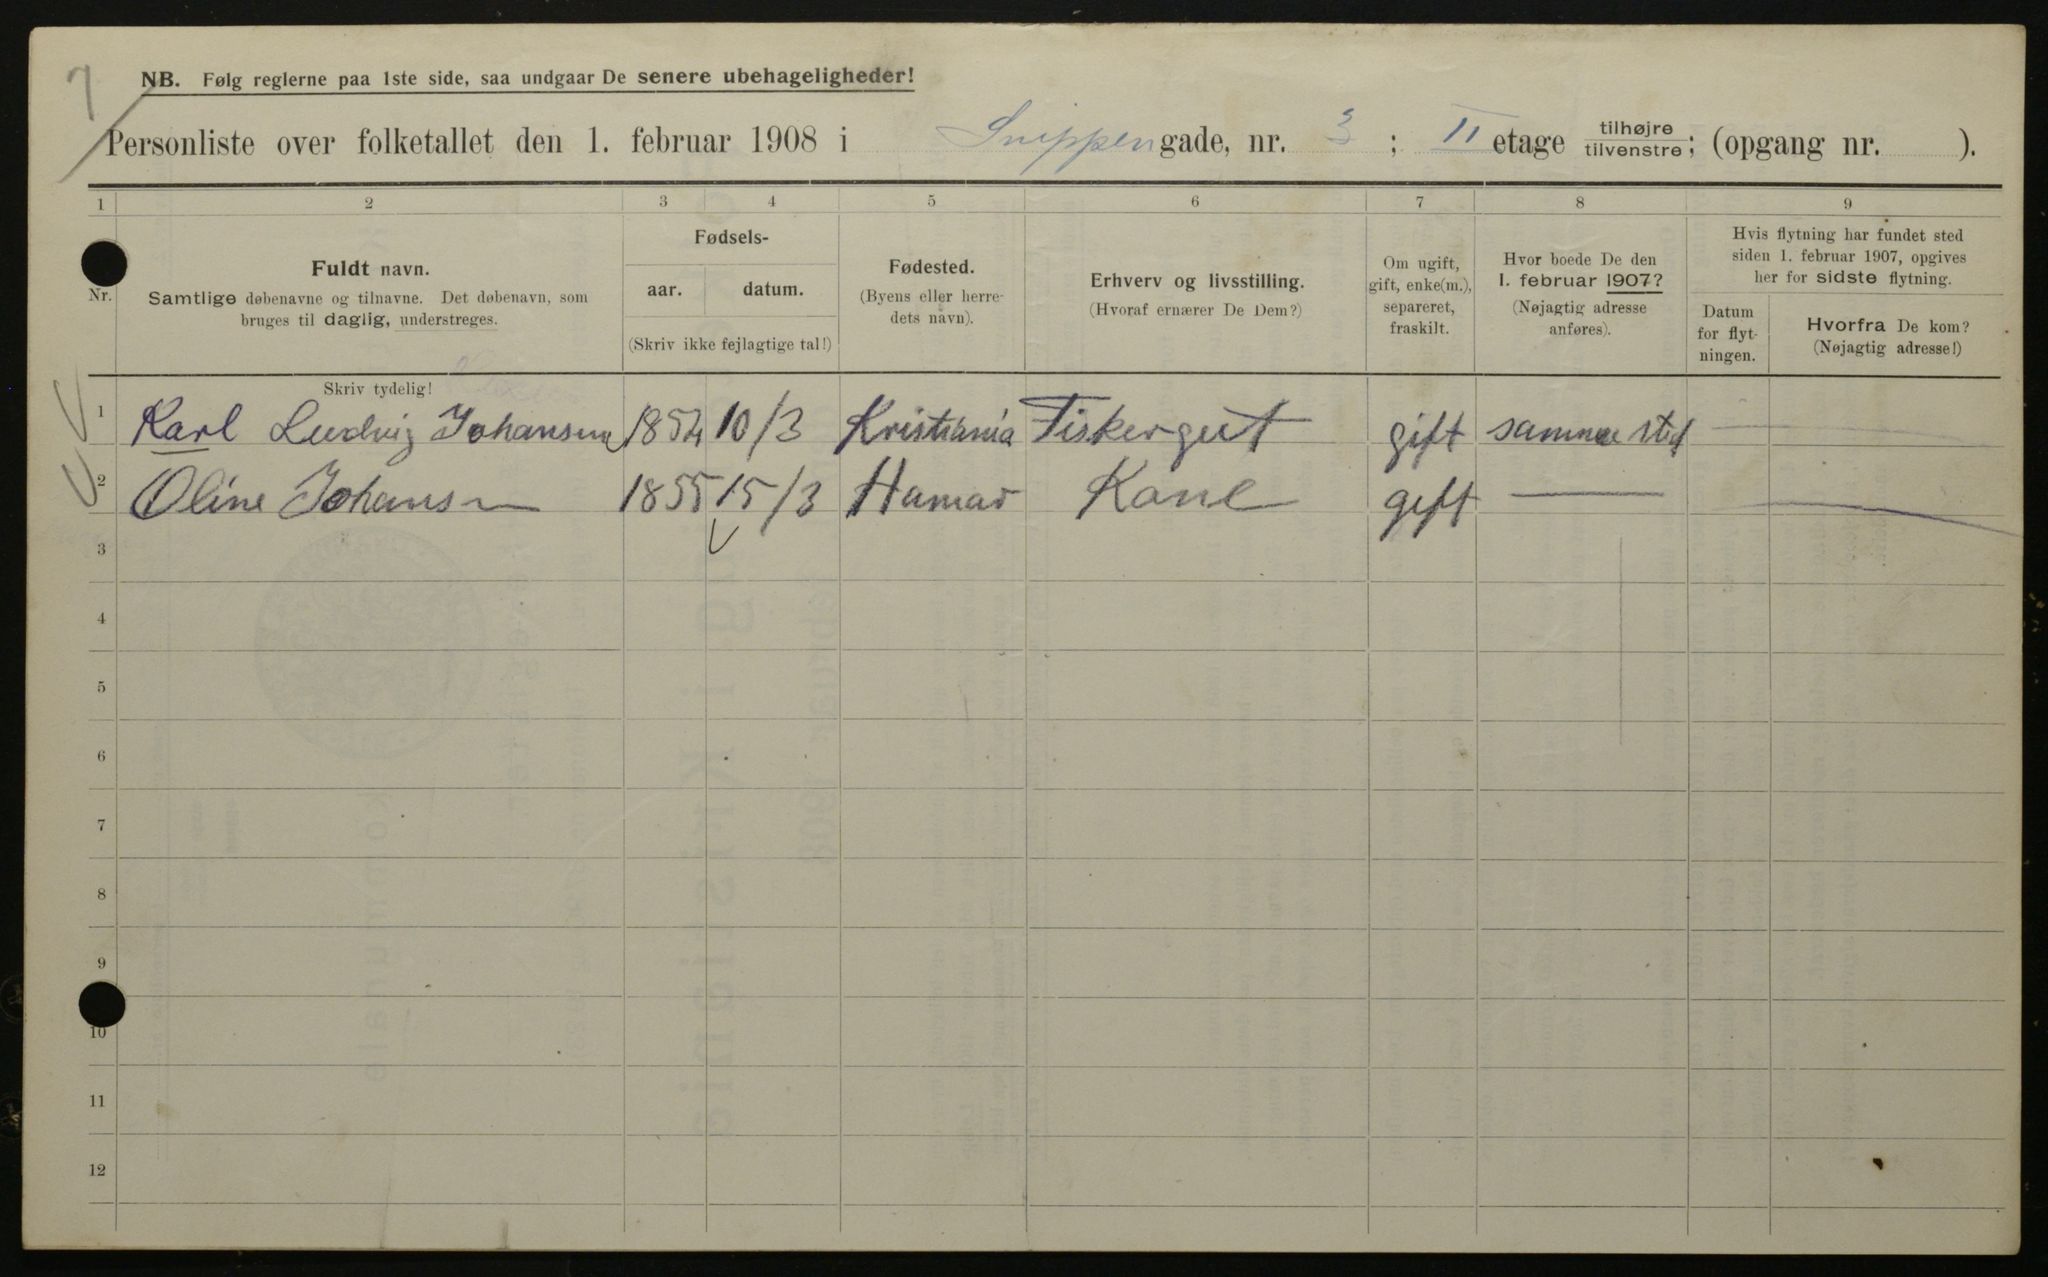 7
NB. Følg reglerne paa 1ste side, saa undgaar De senere ubehageligheder!
Personliste over folketallet den 1. februar 1908 i Snippen gade, nr. 3 ; II etage tilhøjre tilvenstre; (opgang nr. ).
1 2 3 4 5 6 7 8 9
Nr.
Fuldt navn.
Samtlige døbenavne og tilnavne. Det døbenavn, som
bruges til daglig, understreges.
Skriv tydelig!
Fødsels-
aar. datum.
(Skriv ikke fejlagtige tal!)
Fødested.
(Byens eller herre-
dets navn).
Erhverv og livsstilling.
(Hvoraf ernærer De Dem?)
Om ugift,
gift, enke(m.),
separeret,
fraskilt.
Hvor boede De den
1. februar 1907?
(Nøjagtig adresse
anføres).
Hvis flytning har fundet sted
siden 1. februar 1907, opgives
her for sidste flytning.
Datum
for flyt-
ningen.
Hvorfra De kom?
(Nøjagtig adresse!)
1 Karl Ludvig Johansen 1854 10/3 Kristiania Fiskergut gift samme sted
2 Oline Johansen 1855 15/3 Hamar Kone gift —
3
4
5
6
7
8
9
10
11
12